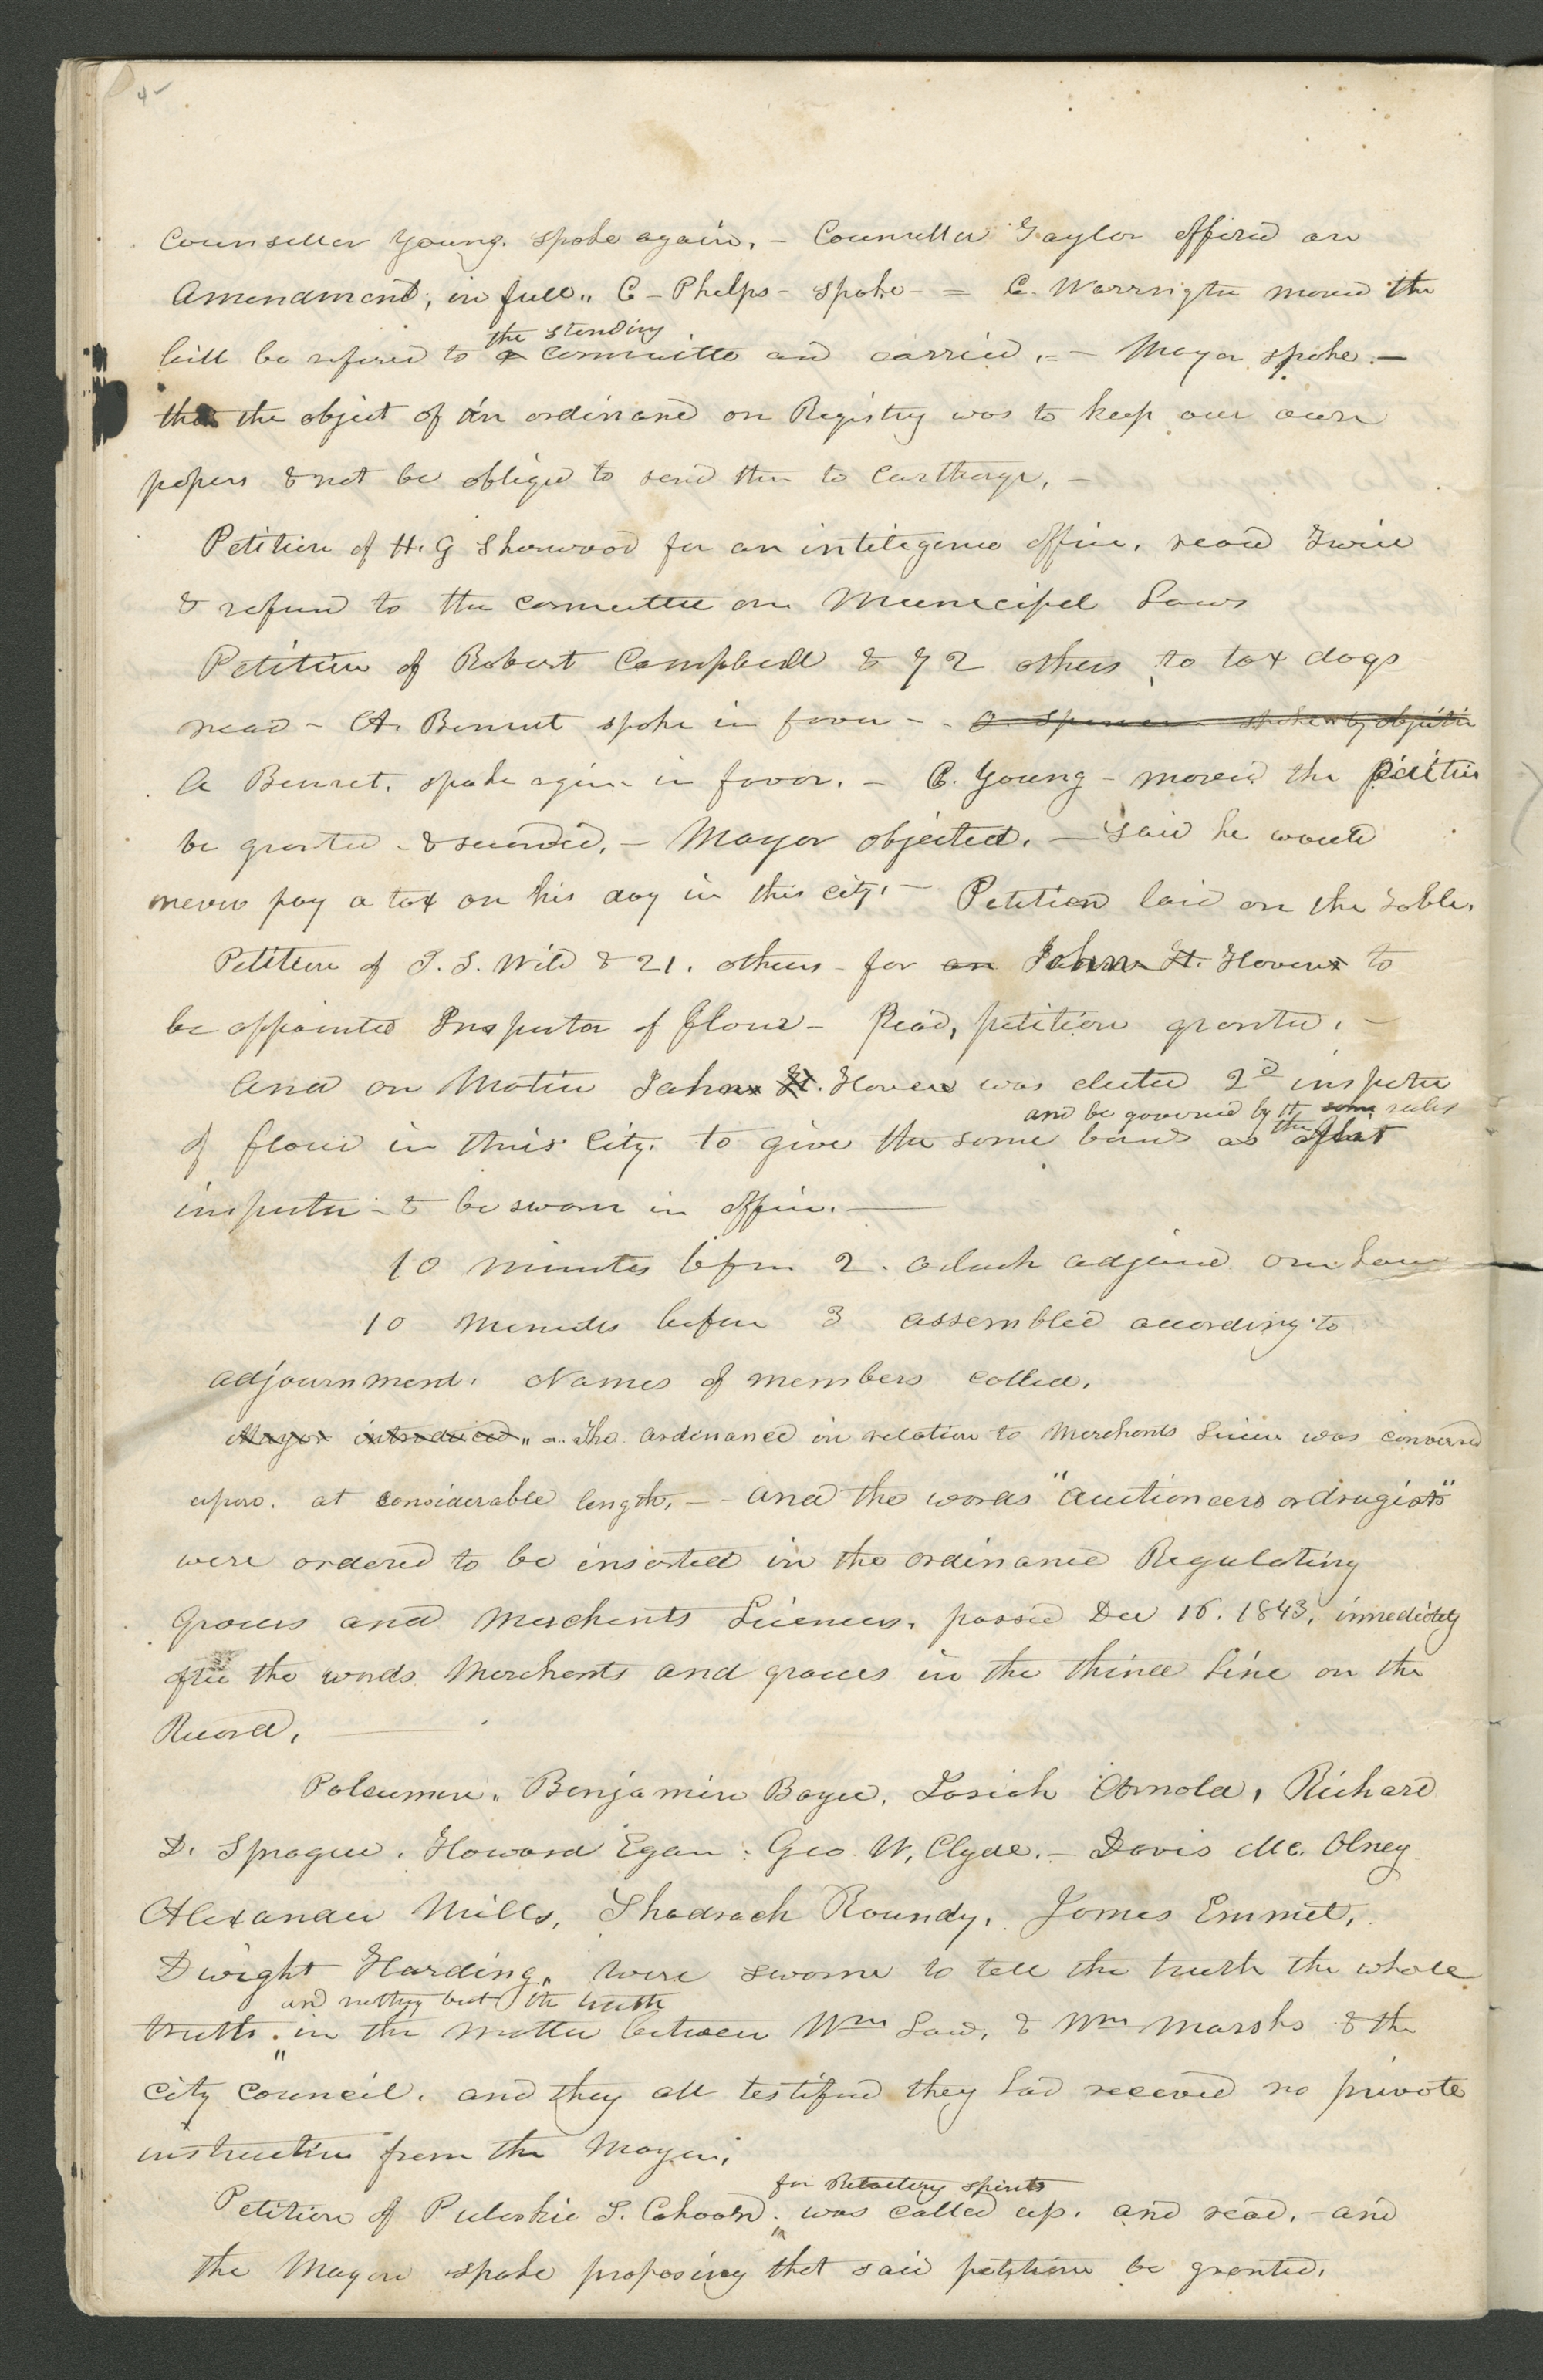 4
Counseller Young. spoke again, - Counseller Taylor offired an
Amendment, in full,, C - Phelps - spoke - = C. Warrington moved the
bill be refered to a the standing committe and carried. = - Mayor spoke. -
that the object of an ordinance on Registry was to keep our own
papers & not be obliged to send them to Carthage, -
Petition of H. G Sherwood for an inteligence office, read Twice
& referred to the committee on Municipal Laws
Petition of Robert Campbell & 72 others to tax dogs
read - A. Bennet spoke in favor - - O. Spencer spoke by objection
A Bennet. spoke again in favor. - C. Young - moved the petition
be granted - & seconded, - Mayor objected. - said he would
never pay a tax on his dog in this city, - Petition laid on the table,
Petition of J. S. Wild & 21. others - for an John H. Hovens to
be appointed Inspector of flour - Read, petition granted, -
And on Motion John H. Hoven was elected 2d inspector
and be governed by the same rules
of flour in this City. to give the same bond as the first
inspector - & be sworn in office. -
10 minutes before 2. oclock adjourned one hour
10 minutes before 3 assembled according to
adjournment. Names of members called.
Mayor introduced ,, a.. The ordinance in relation to Merchants Licence was conversed
upon. at considerable length, - - and the words "auctioneers or drugists"
were ordered to be inserted in the ordinance Regulating
Grocers and Merchants Licences, passed Dec 16. 1843, immediately
after the words Merchants and grocers in the third Line on the
Record, -
Policemen,, Benjamin Boyce, Josiah Arnold, Richard
D. Sprague. Howard Egan. Geo. W. Clyde. - Davis Mc. Olney
Alexander Mills, Shadrach Roundy, James Emmet,
Dwight Harding,, were sworne to tell the truth the whole
and nothing but the truth
truth. in the matter between Wm Law, & Wm Marshs & the
City Council. and they all testified they had received no private
instruction from the Mayor.
for Refractory spirits
Petition of Puloskie S. Cahoon. was called up. and read, - and
the Mayor spoke proposing that said petition be granted.